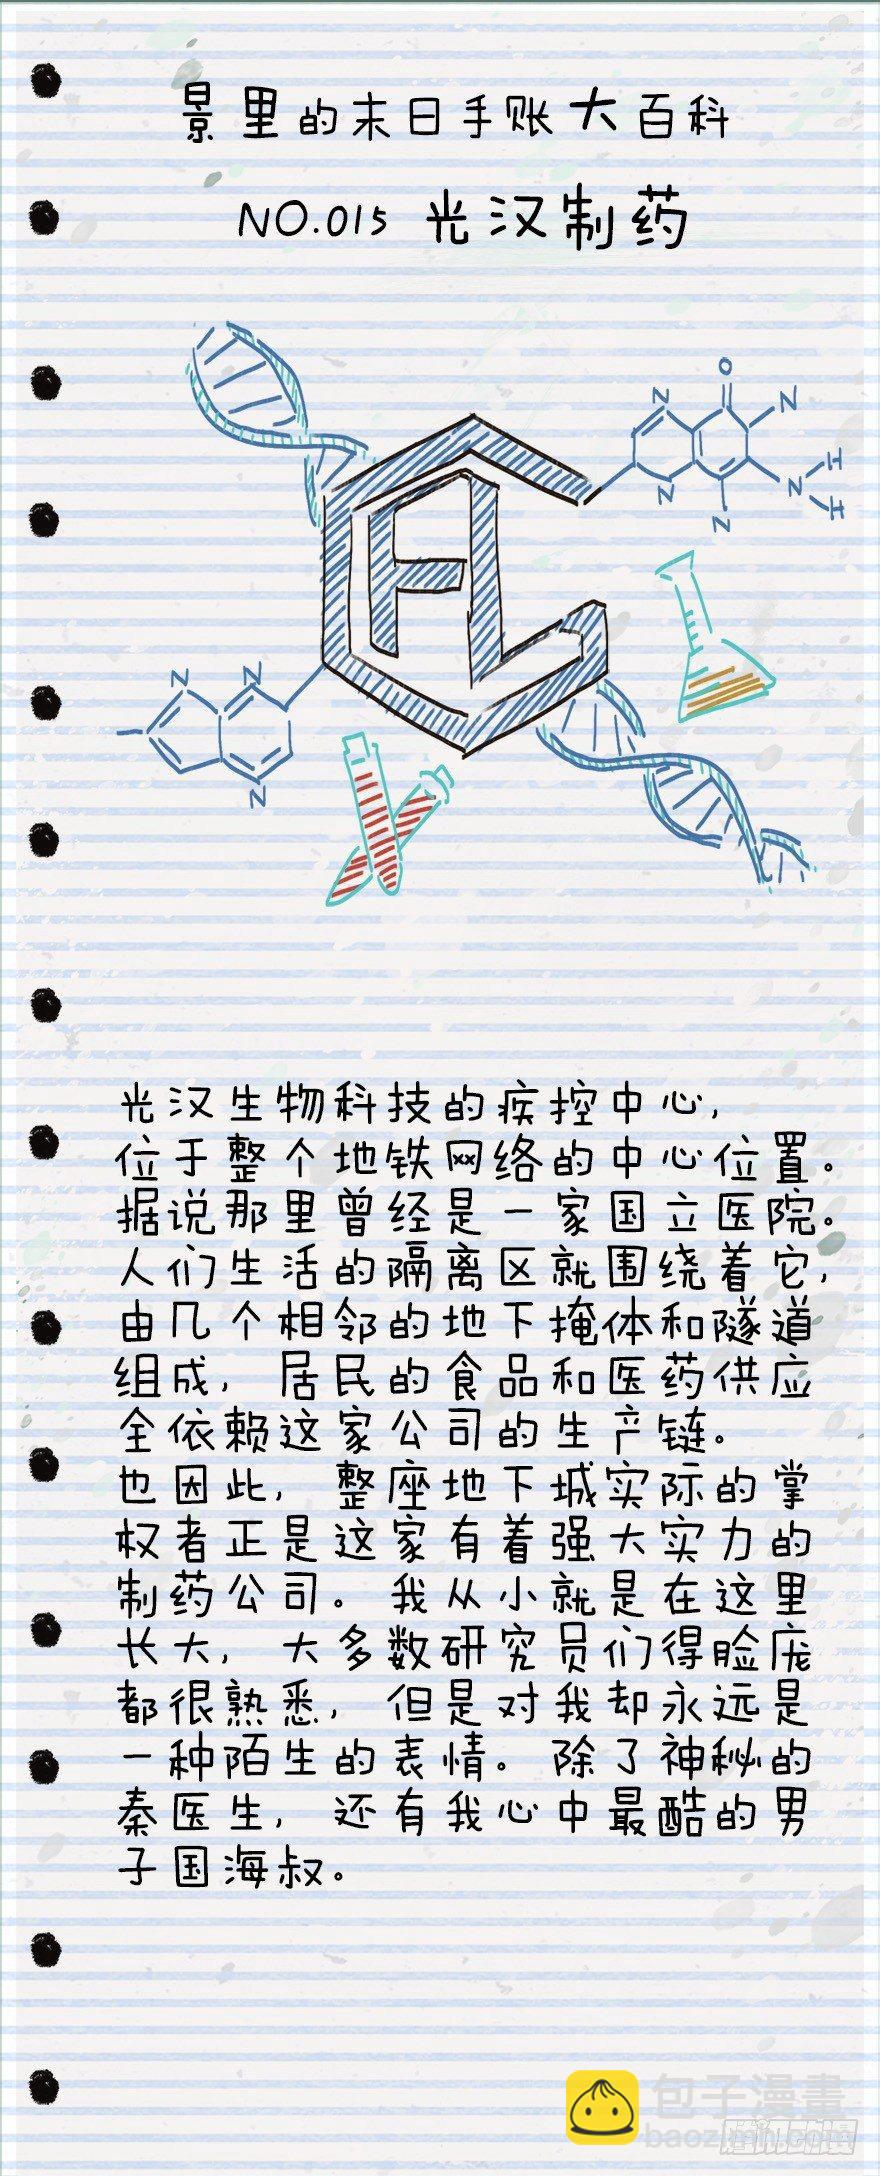 景里的末日手账大百科
NO.015 光汉制药
FL
O
N
N
N
N
H
N
N
H
N
N
N
光汉生物科技的疾控中心，
位于整个地铁网络的中心位置。
据说那里曾经是一家国立医院。
人们生活的隔离区就围绕着它，
由几个相邻的地下掩体和隧道
组成，居民的食品和医药供应
全依赖这家公司的生产链。
也因此，整座地下城实际的掌
权者正是这家有着强大实力的
制药公司。我从小就是在这里
长大，大多数研究员们得脸庞
都很熟悉，但是对我却永远是
一种陌生的表情。除了神秘的
秦医生，还有我心中最酷的男
子国海叔。
包子漫畫